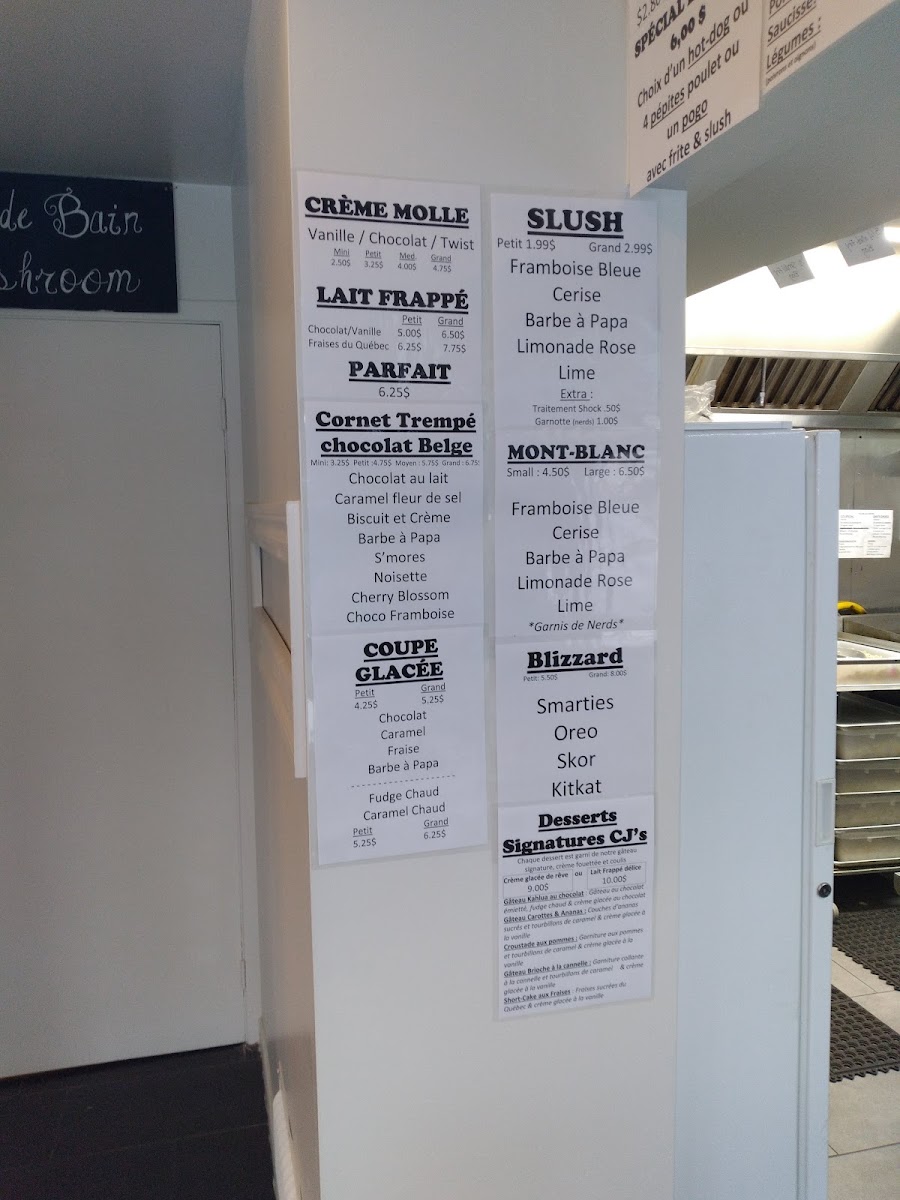 de Bain
shroom
$2.80
SPÉCIAL
6,00 $
Choix d'un hot-dog ou
4 pépites poulet ou
un pogo
avec frite & slush
Saucisse
Légumes :
CRÈME MOLLE
Vanille / Chocolat / Twist
Mini Petit Med. Grand
2.50$ 3.25$ 4.00$ 4.75$
LAIT FRAPPÉ
Petit Grand
Chocolat/Vanille 5.00$ 6.50$
Fraises du Québec 6.25$ 7.75$
PARFAIT
6.25$
Cornet Trempé
chocolat Belge
Mini: 3.25$ Petit :4.75$ Moyen : 5.75$ Grand : 6.75
Chocolat au lait
Caramel fleur de sel
Biscuit et Crème
Barbe à Papa
S'mores
Noisette
Cherry Blossom
Choco Framboise
COUPE
GLACÉE
Petit Grand
4.25$ 5.25$
Chocolat
Caramel
Fraise
Barbe à Papa
Fudge Chaud
Caramel Chaud
Petit Grand
5.25$ 6.25$
SLUSH
Petit 1.99$ Grand 2.99$
Framboise Bleue
Cerise
Barbe à Papa
Limonade Rose
Lime
Extra :
Traitement Shock .50$
Garnotte (nerds) 1.00$
MONT-BLANC
Small : 4.50$ Large : 6.50$
Framboise Bleue
Cerise
Barbe à Papa
Limonade Rose
Lime
*Garnis de Nerds*
Blizzard
Petit: 5.50$ Grand: 8.00$
Smarties
Oreo
Skor
Kitkat
Desserts
Signatures CJ's
Chaque dessert est garni de notre gâteau
signature, crème fouettée et coulis
Crème glacée de rêve ou Lait Frappé délice
9.00$ 10.00$
Gâteau Kahlua au chocolat : Gâteau au chocolat
émietté, fudge chaud & crème glacée au chocolat
Gâteau Carottes & Ananas : Couches d'ananas
sucrés et tourbillons de caramel & crème glacée à
la vanille
Croustade aux pommes : Garniture aux pommes
et tourbillons de caramel & crème glacée à la
vanille
Gâteau Brioche à la cannelle : Garniture collante
à la cannelle et tourbillons de caramel & crème
glacée à la vanille
Short-Cake aux Fraises : Fraises sucrées du
Québec & crème glacée à la vanille